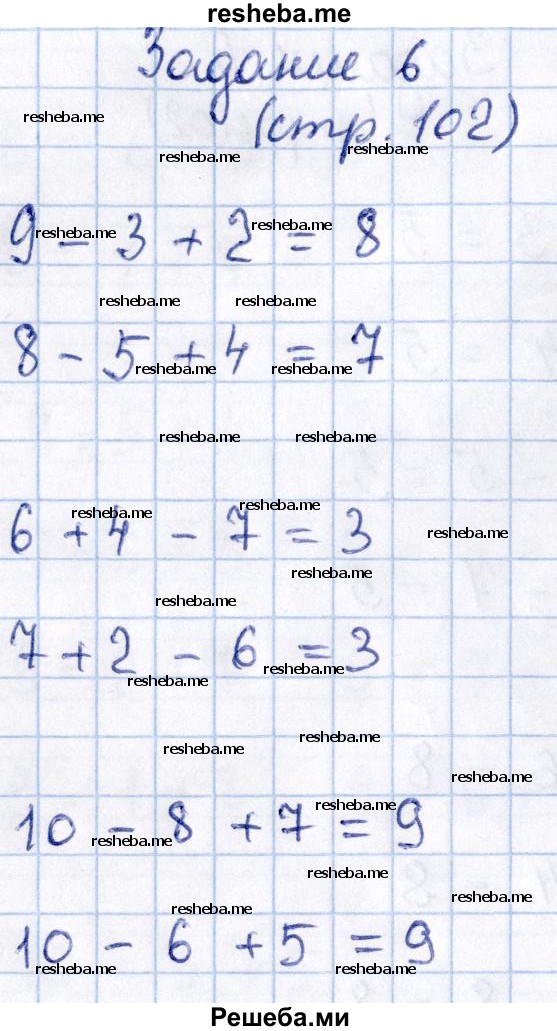 resheba.me
Задание 6
resheba.me
(стр. 102)
resheba.me
resheba.me
9 - 3 + 2 = 8
resheba.me resheba.me
resheba.me resheba.me
8 - 5 + 4 = 7
resheba.me resheba.me
resheba.me resheba.me
6 + 4 - 7 = 3
resheba.me resheba.me
resheba.me
resheba.me
resheba.me
7 + 2 - 6 = 3
resheba.me
resheba.me
resheba.me
resheba.me
resheba.me
10 - 8 + 7 = 9
resheba.me
resheba.me
resheba.me
resheba.me
resheba.me
10 - 6 + 5 = 9
resheba.me resheba.me
Решеба.ми